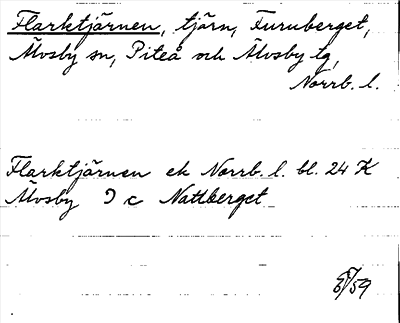 Flarktjärnen, tjärn, Furuberget,
Älvsby sn, Piteå och Älvsby tg,
Norrb. l.
Flarktjärnen ek Norrb. l. bl. 24 K
Älvsby 9 c Nattberget
/59